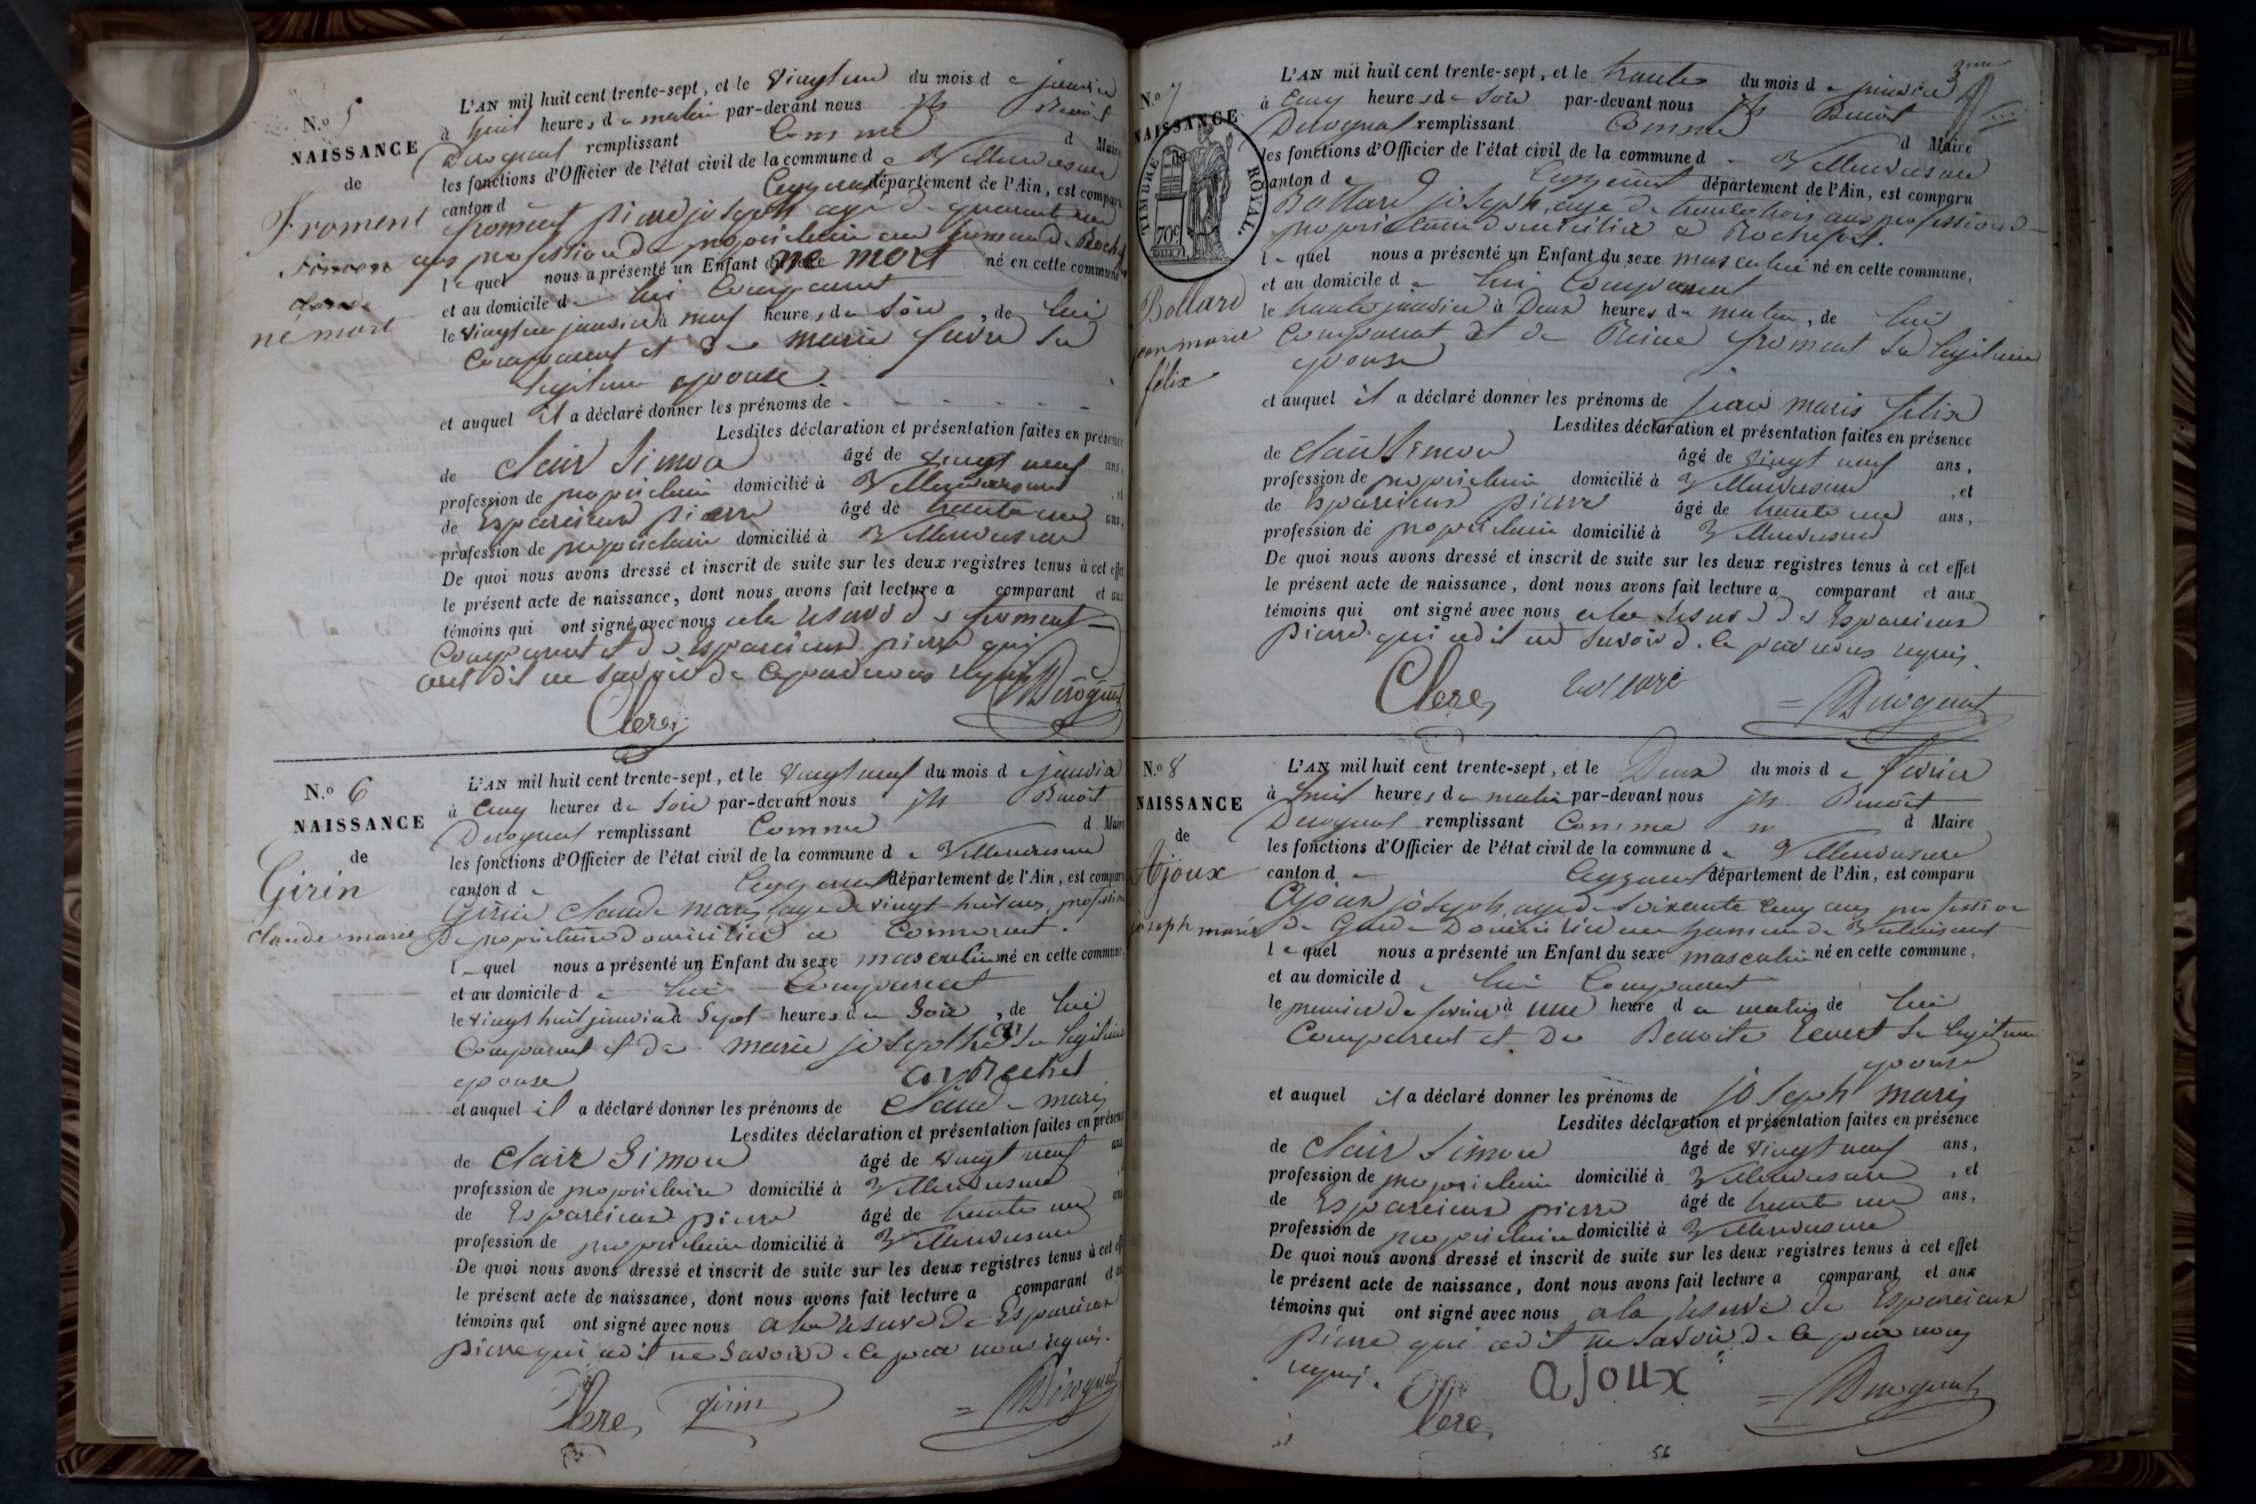 N.º 5
NAISSANCE
de
Froment
né mort
L'AN mil huit cent trente-sept, et le vingt un du mois d e janvier
à huit heures d u matin par-devant nous jh Benoit
Derognat remplissant Comme d Maire
les fonctions d'Officier de l'état civil de la commune d e Villereversure
canton d Ceyzeriat département de l'Ain, est comparu
froment pierre joseph age de quarante un
ans profession de propriétaire au hameau de Roch
l e quel nous a présenté un Enfant du sexe né mort né en cette commune,
et au domicile d e lui Comparant
le vingt un janvier à neuf heures du Soir, de lui
Comparant et de marie favre Sa
legitime epouse.
et auquel il a déclaré donner les prénoms de - - - - - -
Lesdites déclaration et présentation faites en présence
de Clair Simon âgé de vingt neuf ans,
profession de propriétaire domicilié à Villereversure, et
de Espareieux pierre âgé de trente un ans,
profession de propriétaire domicilié à Villereversure
De quoi nous avons dressé et inscrit de suite sur les deux registres tenus à cet effet
le présent acte de naissance, dont nous avons fait lecture a comparant et aux
témoins qui ont signé avec nous a la reserve de froment
Comparant et de Espareieux pierre qui
ont dit ne savoir de ce par nous requis
Derognat
N.º 6
NAISSANCE
de
Girin
Claude marie
L'AN mil huit cent trente-sept, et le vingt neuf du mois d e janvier
à Cinq heures du Soir par-devant nous jh Benoit
Derognat remplissant Comme d Maire
les fonctions d'Officier de l'état civil de la commune d e Villereversure
canton d e Ceyzeriat département de l'Ain, est comparu
Girin Claude marie, age de vingt-huit ans, profession
De propriétaire domicilié a
l e quel nous a présenté un Enfant du sexe masculin né en cette commune,
et au domicile d e lui Comparant
le vingt huit janvier à Sept heures du Soir, de lui
Comparant et de marie josephe Sa legitime
epouse
et auquel il a déclaré donner les prénoms de Claude marie
Lesdites déclaration et présentation faites en présence
de Clair Simon âgé de vingt neuf ans
profession de propriétaire domicilié à Villereversure
de Espareieux pierre âgé de trente un ans
profession de propriétaire domicilié à Villereversure
De quoi nous avons dressé et inscrit de suite sur les deux registres tenus à cet effet
le présent acte de naissance, dont nous avons fait lecture a comparant et aux
témoins qui ont signé avec nous a la reserve de Espareieux
pierre qui a dit ne Savoir de ce par nous requis.
girin Derognat
N.º 7
NAISSANCE
TIMBRE ROYAL.
70c
Bollard
jean marie
félix
L'AN mil huit cent trente-sept, et le trente du mois d e janvier
à Cinq heures du Soir par-devant nous jh Benoit
Derognat remplissant Comme d Maire
les fonctions d'Officier de l'état civil de la commune d e Villereversure
canton d e Ceyzeriat département de l'Ain, est comparu
Bollard joseph, age de trente trois ans profession de
propriétaire domicilié a Rochefort.
l e quel nous a présenté un Enfant du sexe masculin né en cette commune,
et au domicile d e lui Comparant
le trente janvier à Deux heures du matin, de lui
Comparant et de Reine froment Sa legitime
epouse
et auquel il a déclaré donner les prénoms de jean marie félix
Lesdites déclaration et présentation faites en présence
de Clair Simon âgé de vingt neuf ans,
profession de propriétaire domicilié à Villereversure, et
de Espareieux pierre âgé de trente un ans,
profession de propriétaire domicilié à Villereversure
De quoi nous avons dressé et inscrit de suite sur les deux registres tenus à cet effet
le présent acte de naissance, dont nous avons fait lecture a comparant et aux
témoins qui ont signé avec nous a la reserve de Espareieux
pierre qui a dit ne Savoir de ce par nous requis.
Derognat
N.º 8
NAISSANCE
de
Ajoux
joseph marie
L'AN mil huit cent trente-sept, et le Deux du mois d e fevrier
à huit heures du matin par-devant nous jh Benoit
Derognat remplissant Comme d Maire
les fonctions d'Officier de l'état civil de la commune d e Villereversure
canton d e Ceyzeriat département de l'Ain, est comparu
Ajoux joseph, age de soixante cinq ans profession
de Garde Domicilié au hameau de
l e quel nous a présenté un Enfant du sexe masculin né en cette commune,
et au domicile d e lui Comparant
le premier de fevrier à une heure du matin, de lui
Comparant et de Benoite Sa legitime
epouse
et auquel il a déclaré donner les prénoms de joseph marie
Lesdites déclaration et présentation faites en présence
de Clair Simon âgé de vingt neuf ans,
profession de propriétaire domicilié à Villereversure, et
de Espareieux pierre âgé de trente un ans,
profession de propriétaire domicilié à Villereversure
De quoi nous avons dressé et inscrit de suite sur les deux registres tenus à cet effet
le présent acte de naissance, dont nous avons fait lecture a comparant et aux
témoins qui ont signé avec nous a la reserve de Espareieux
pierre qui a dit ne Savoir de ce par nous
requis.
ajoux Derognat
56